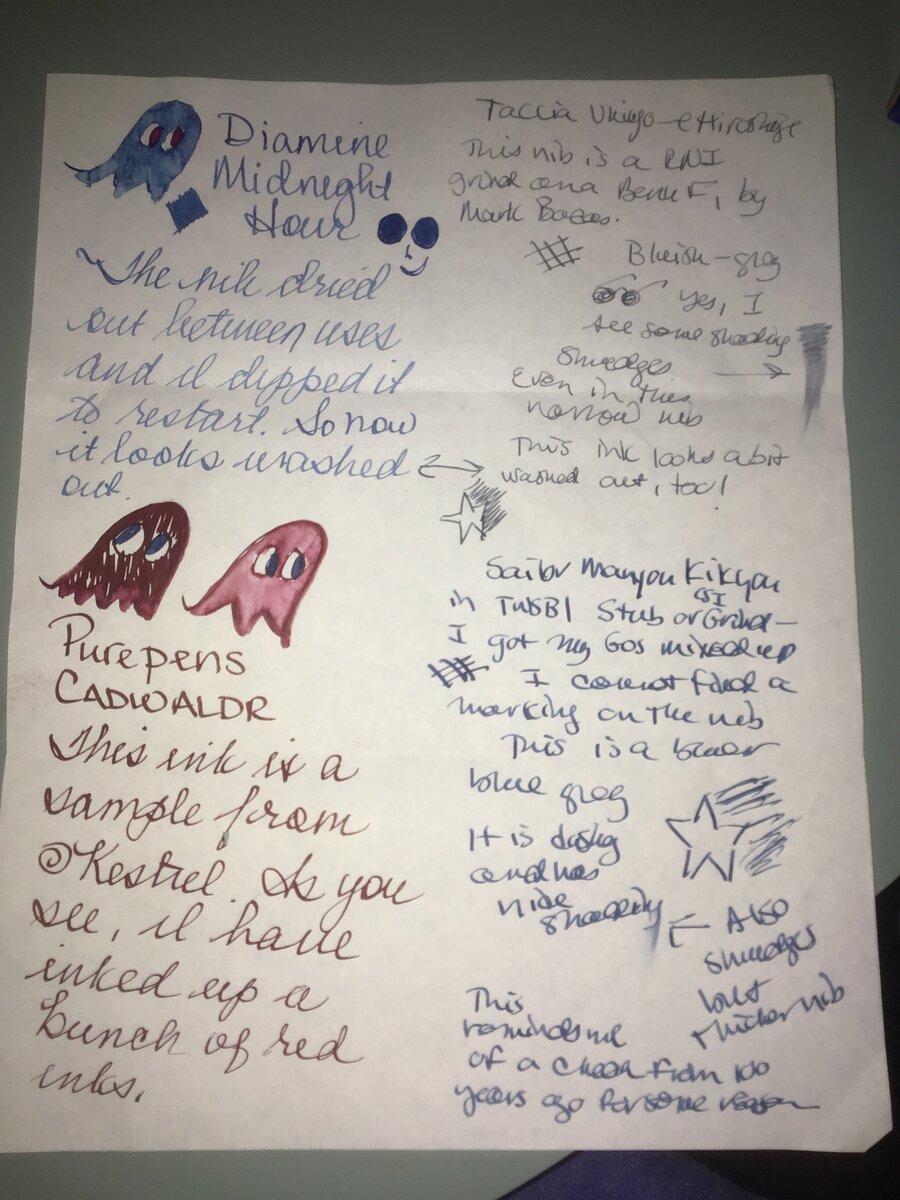 Diamine
Midneght
Hour
The nib dried
out between uses
and I dipped it
to restart. So now
it looks washed
out.
Purepens
CADWALDR
This ink is a
sample from
@Kestrel. As you
see, I have
inked up a
bunch of red
inks.
Taccia Ukiyo-e Hiroshige
This nib is a
grind on a F, by
Mark Bacas.
Blueish-grey
yes, I
see some shading
Smudges
Even in this
narrow nib
This ink looks a bit
washed out, too!
Sailor Manyou Kikyou
in TWSBI Stub or Grind—
SI
I got my Gos mixed up
I cannot find a
marking on the nib
This is a bluer
blue grey
It is
and has
nice
shading
Also
smudges
but
thicker nib
This
reminds me
of a from 100
years ago for some reason